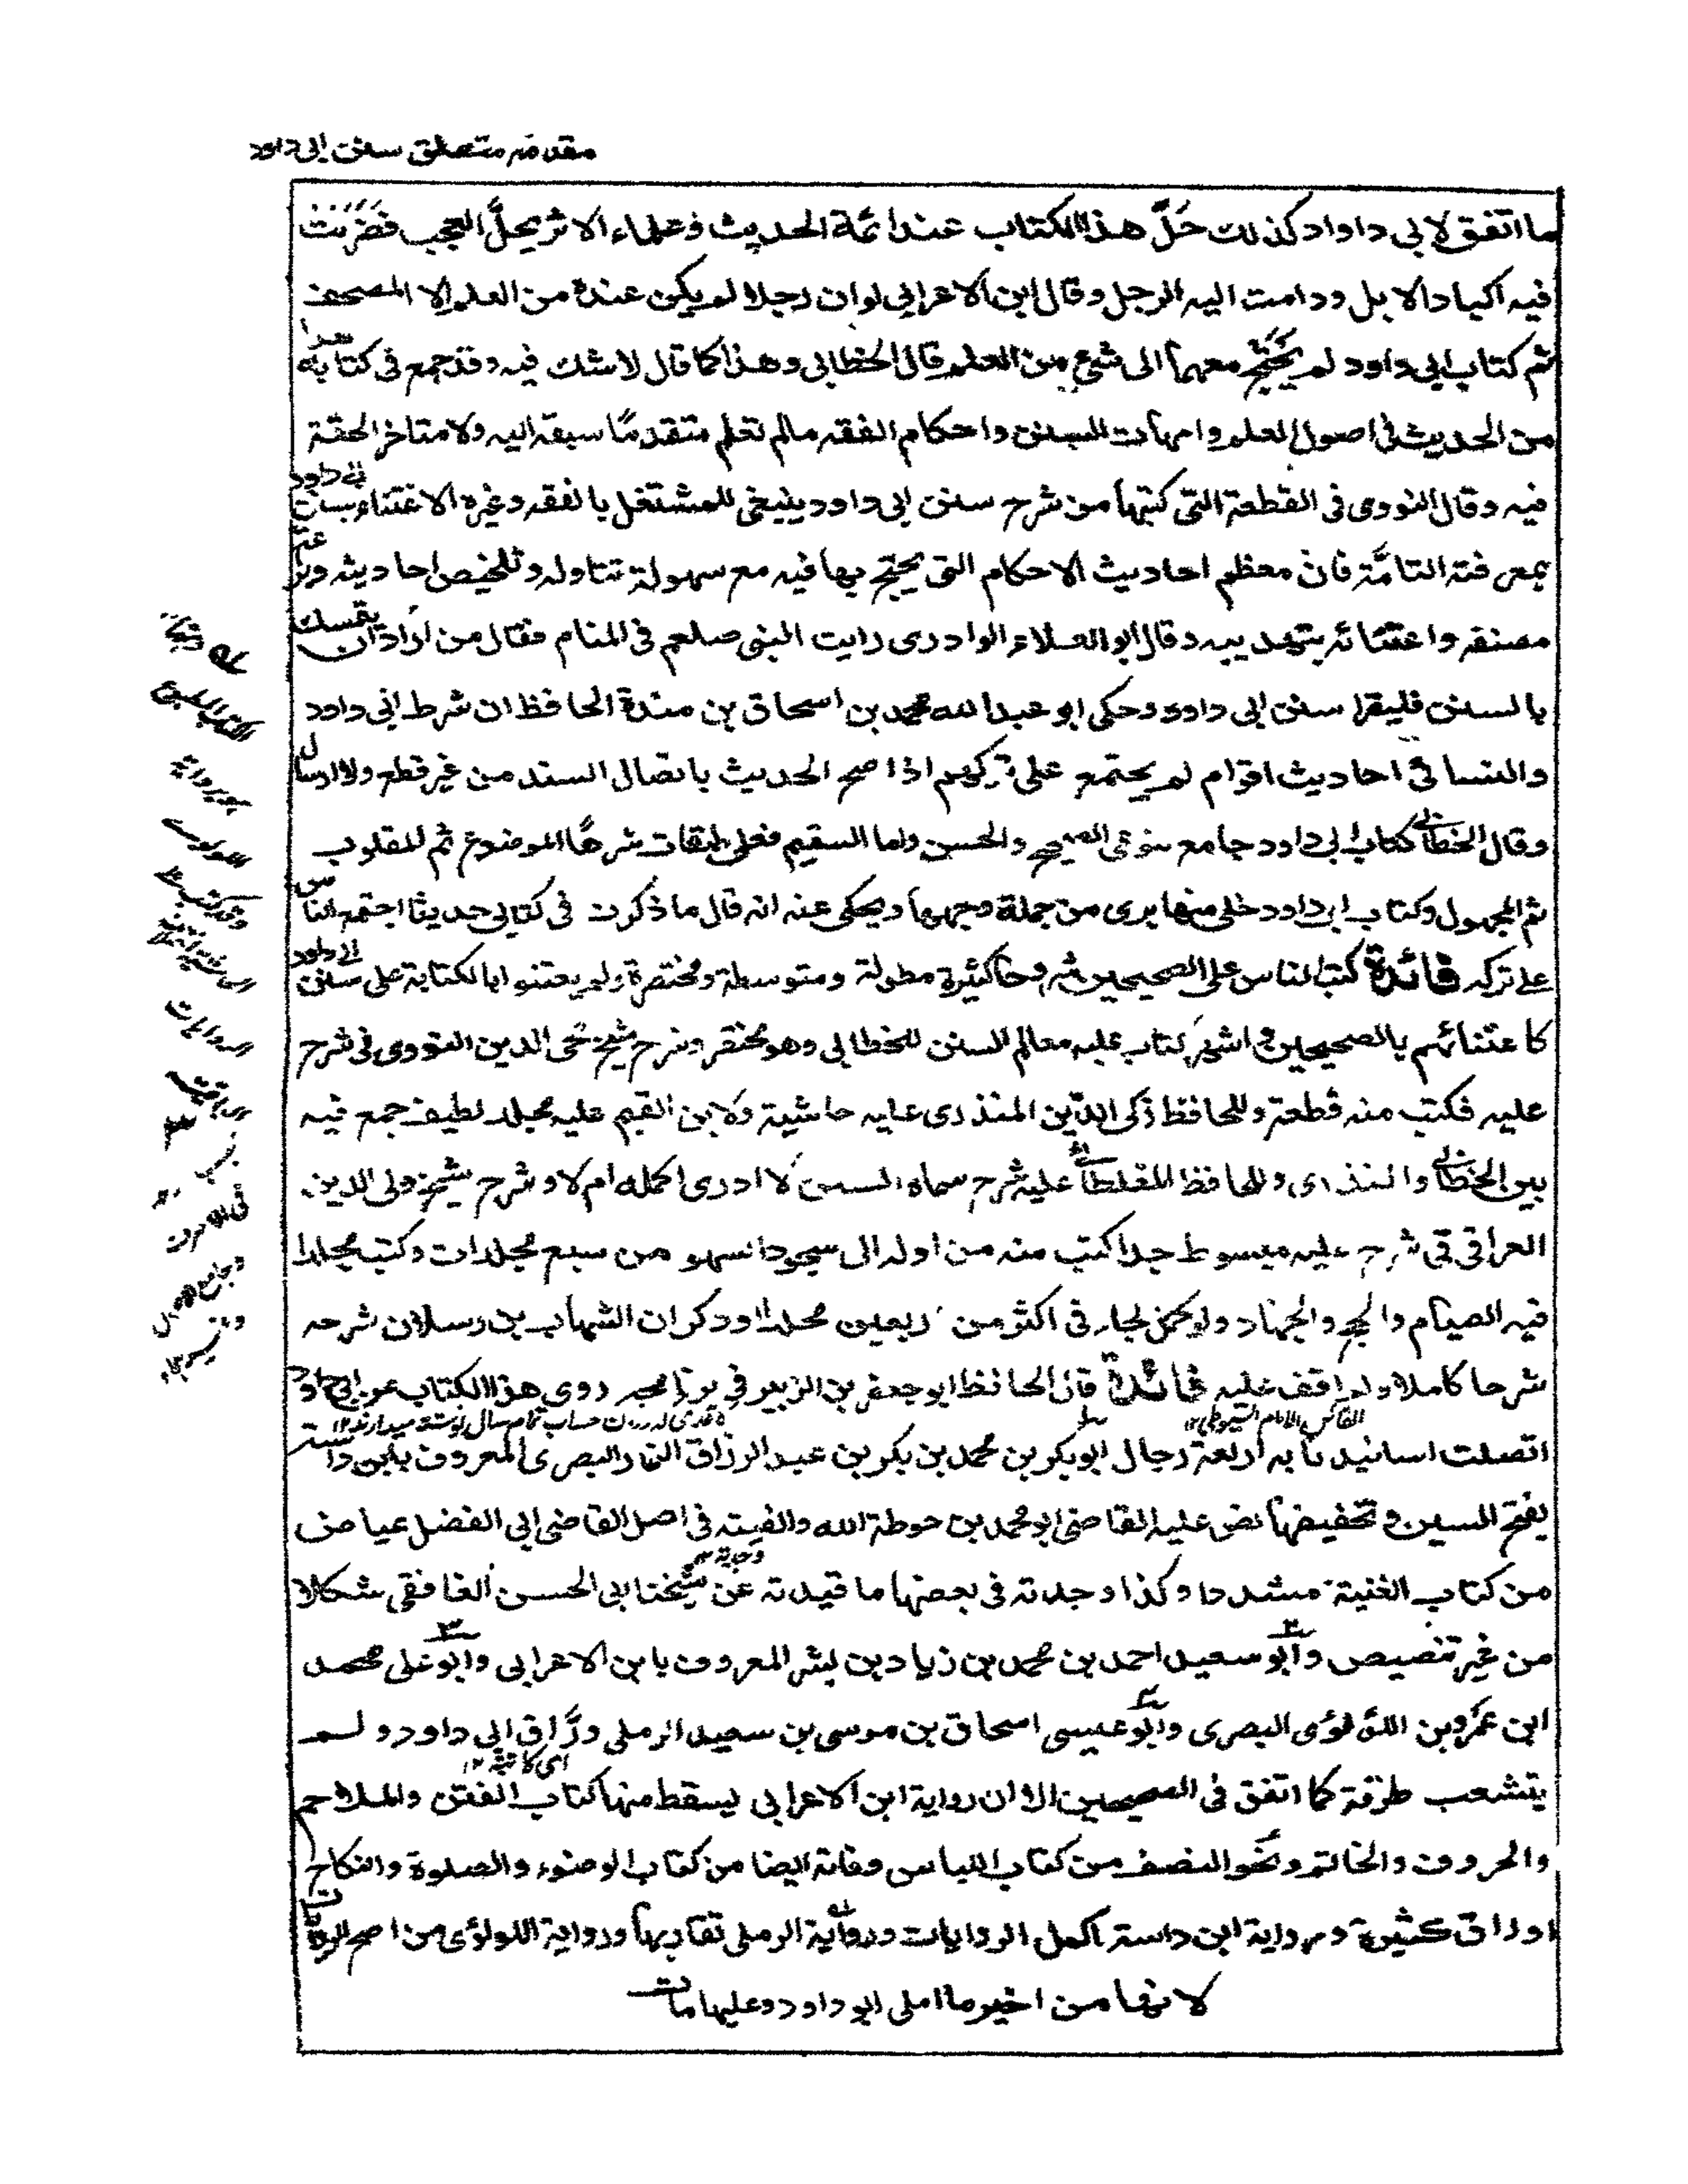 مقدمه متعلق سنن ابی داود
ما اتفق لابی داواد كذلك حَلَّ هذا الكتاب عند ائمة الحديث وعلماء الاثر يحلّ العجب فضربت
فيه اكباد الابل ودامت اليه الرجل وقال ابن الاعرابی لو ان رجلا لم يكن عنده من العلم الا المصحف
ثم كتاب ابی داود لم يحتج معهما الی شئ من العلم قال الخطابی وهذا كما قال لا شك فيه وقد جمع فی كتابه هذا
من الحديث فی اصول العلم وامهات السنن واحكام الفقه مالم تعلم متقدمًا سبقه اليه ولا متاخر الحقه
فيه وقال النووی فی القطعة التی كتبها من شرح سنن ابی داود ينبغی للمشتغل بالفقه وغيره الاعتناء بسنن ابی داود
بمعرفته التامّة فان معظم احاديث الاحكام التی يحتج بها فيه مع سهولة تناوله وتلخيص احاديثه
مصنفه واعتنائه بتهذيبه وقال ابو العلاء الوادری رايت النبی صلعم فی المنام فقال من اراد ان يتمسك
بالسنن فليقرا سنن ابی داود وحكی ابو عبد الله محمد بن اسحاق بن مندة الحافظ ان شرط ابی داود
والنسائی احاديث اقوام لم يجتمع علی تركهم اذا صح الحديث باتصال السند من غير قطع ولا ارسال
وقال الخطابی كتاب ابی داود جامع بنوعی الصحيح والحسن واما السقيم فعلی طبقات شرها الموضوع ثم المقلوب
ثم المجهول وكتاب ابی داود خلی منها بری من جملة وجهها ويحكی عنه انه قال ما ذكرت فی كتابی حديثا اجتمع الناس
علی تركه فائدة كتب الناس علی الصحيحين شروحا كثيرة مطولة ومتوسطة ومختصرة ولم يعتنوا بالكتابة علی سنن ابی داود
كاعتنائهم بالصحيحين اشهر كتاب عليه معالم السنن للخطابی وهو مختصر وشرح شيخ محی الدين النووی فی شرح
عليه فكتب منه قطعة وللحافظ زكی الدّين المنذری عليه حاشية ولابن القيم عليه مجلد لطيف جمع فيه
بين الخطابی والمنذری وللحافظ المغلطائی عليه شرح سماه السنن لا ادری اكمله ام لا وشرح شيخ ولی الدين
العراقی فی شرح عليه مبسوط جدا كتب منه من اوله الی سجود السهو من سبع مجلدات وكتب مجلدا
فيه الصيام والحج والجهاد ولو كمل لجاء فی اكثر من اربعين مجلدا وذكر ان الشهاب بن رسلان شرحه
شرحا كاملا ولم اقف عليه فائدة قال الحافظ ابو جعفر بن الزبير فی برنامجه روی هذا الكتاب عن ابی داود
القائل الامام السيوطی ١٢
اتصلت اسانيدنا به اربعة رجال ابو بكر بن محمد بن بكر بن عبد الرزاق التمار البصری المعروف بابن داسة
بفتح السين وتخفيفها نص عليه القاضی ابو محمد بن حوطة الله والفيته فی اصل القاضی ابی الفضل عياض
من كتاب الغنية مشددا وكذا وجدته فی بعضها ما قيدته عن شيخنا ابی الحسن الغافقی شكلا
من غير تنصيص وابو سعيد احمد بن محمد بن زياد بن بشر المعروف بابن الاعرابی وابو علی محمد
ابن عمرو بن اللؤلؤی البصری وابو عيسی اسحاق بن موسی بن سعيد الرملی ورّاق ابی داود ولم
ای كاتبه ١٢
يتشعب طرقه كما اتفق فی الصحيحين الا ان رواية ابن الاعرابی يسقط منها كتاب الفتن والملاحم
والحروف والخاتم ونحو النصف من كتاب اللباس وفاته ايضا من كتاب الوضوء والصلوة والنكاح
اوراق كثيرة ورواية ابن داسة اكمل الروايات ورواية الرملی تقاربها ورواية اللولؤی من اصح الروايات
لانها من اخير ما املی ابو داود وعليها مات